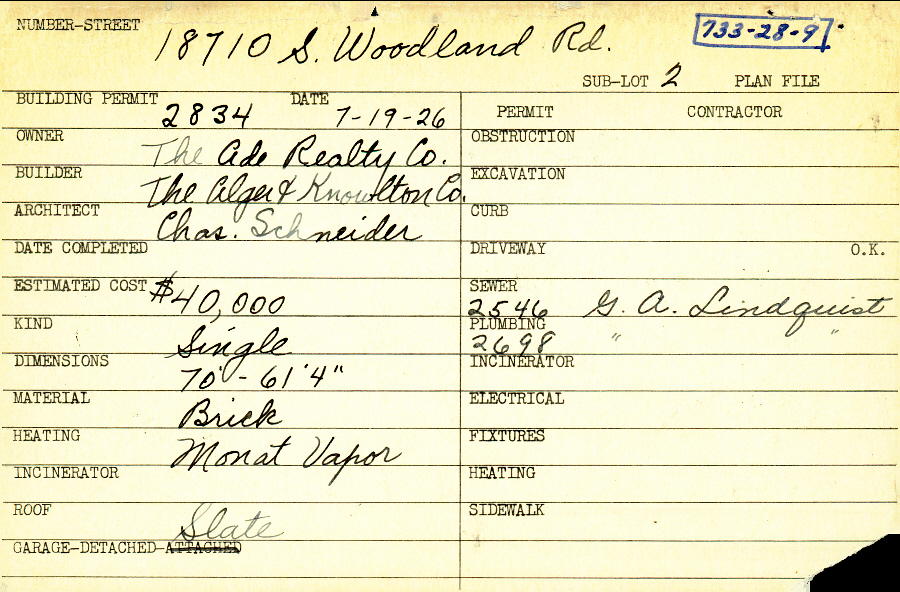 NUMBER-STREET 18710 S. Woodland Rd. 733-28-9
SUB-LOT 2 PLAN FILE
BUILDING PERMIT 2834 DATE 7-19-26
OWNER The Ade Realty Co.
BUILDER The Alger & Knowlton Co.
ARCHITECT Chas. Schneider
DATE COMPLETED
ESTIMATED COST $40,000
KIND Single
DIMENSIONS 70' - 61'4"
MATERIAL Brick
HEATING Monat Vapor
INCINERATOR
ROOF Slate
GARAGE-DETACHED-ATTACHED
PERMIT CONTRACTOR
OBSTRUCTION
EXCAVATION
CURB
DRIVEWAY O.K.
SEWER 2546 G. A. Lindquist
PLUMBING 2698 " "
INCINERATOR
ELECTRICAL
FIXTURES
HEATING
SIDEWALK